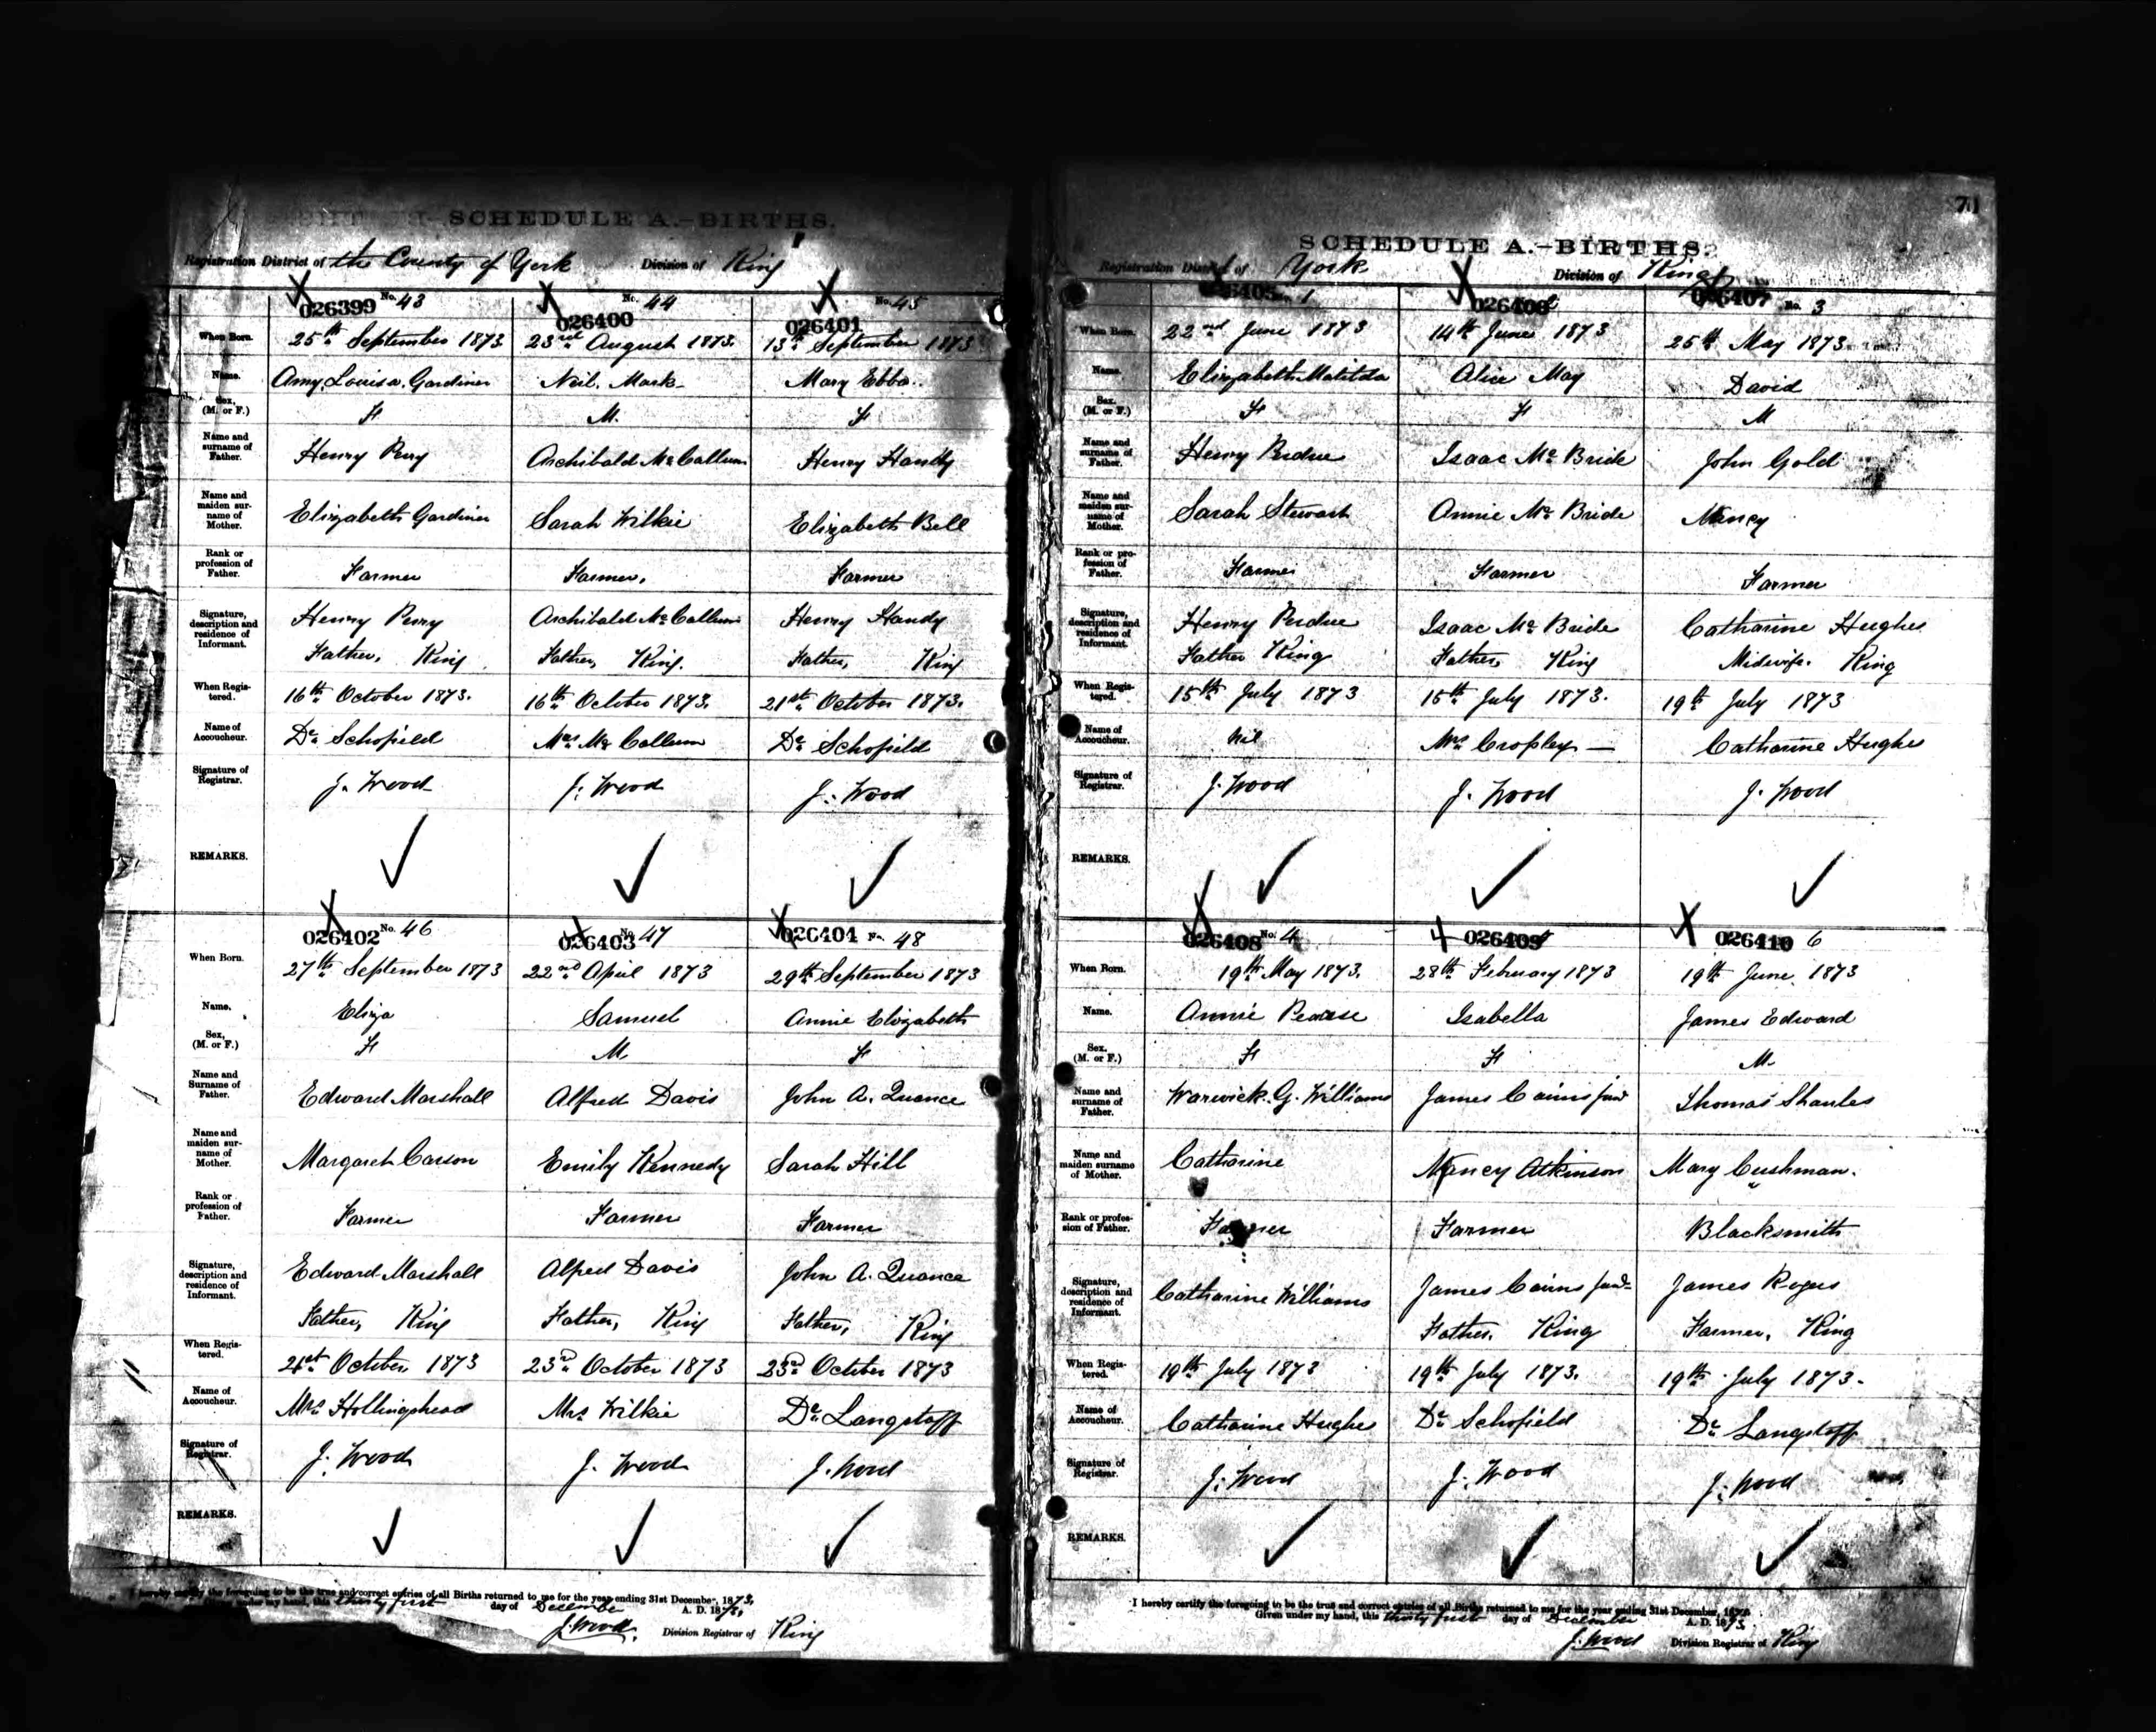 SCHEDULE A.-BIRTHS.
Registration District of the County of York Division of King
026399 No. 43 026400 No. 44 026401 No. 45
When Born. 25th September 1873 23rd August 1873. 13th September 1873
Name. Amy Louisa Gardiner Neil Mark Mary Ebba
Sex, (M. or F.) F M. F
Name and surname of Father. Henry Perry Archibald McCallum Henry Handy
Name and maiden surname of Mother. Elizabeth Gardiner Sarah Wilkie Elizabeth Bell
Rank or profession of Father. Farmer Farmer, Farmer
Signature, description and residence of Informant. Henry Perry Archibald McCallum Henry Handy
Father, King. Father, King. Father, King
When Registered. 16th October 1873. 16th October 1873. 21st October 1873.
Name of Accoucheur. Dr. Schofield Mrs McCallum Dr. Schofield
Signature of Registrar. J. Wood J. Wood J. Wood
REMARKS.
026402 No. 46 026403 No. 47 026404 No. 48
When Born. 27th September 1873 22nd April 1873 29th September 1873
Name. Eliza Samuel Annie Elizabeth
Sex, (M. or F.) F M F
Name and Surname of Father. Edward Marshall Alfred Davis John A. Quance
Name and maiden surname of Mother. Margaret Carson Emily Kennedy Sarah Hill
Rank or profession of Father. Farmer Farmer Farmer
Signature, description and residence of Informant. Edward Marshall Alfred Davis John A. Quance
Father, King Father, King Father, King
When Registered. 21st October 1873 23rd October 1873 23rd October 1873
Name of Accoucheur. Mrs Hollingshead Mrs Wilkie Dr. Langstaff
Signature of Registrar. J. Wood J. Wood J. Wood
REMARKS.
I hereby certify the foregoing to be the true and correct entries of all Births returned to me for the year ending 31st December, 1873,
under my hand, this thirty first day of December A. D. 1873,
J. Wood. Division Registrar of King
71
SCHEDULE A.-BIRTHS.
Registration District of York Division of King
026405 1 026406 026407 No. 3
When Born. 22nd June 1873 14th June 1873 25th May 1873
Name. Elizabeth Matilda Alice May David
Sex. (M. or F.) F F M
Name and surname of Father. Henry Perdue Isaac McBride John Gold
Name and maiden surname of Mother. Sarah Stewart Annie McBride Nancy
Rank or profession of Father. Farmer Farmer Farmer
Signature, description and residence of Informant. Henry Perdue Isaac McBride Catharine Hughes
Father King Father, King Midwife. King
When Registered. 15th July 1873 15th July 1873. 19th July 1873
Name of Accoucheur. Nil Mrs Cropley — Catharine Hughes
Signature of Registrar. J. Wood J. Wood J. Wood
REMARKS.
026408 No. 4 026409 026410 6
When Born. 19th May 1873. 28th February 1873 19th June 1873
Name. Annie Pearse Isabella James Edward
Sex. (M. or F.) F F M.
Name and surname of Father. Warwick G. Williams James Cairns Junr Thomas
Name and maiden surname of Mother. Catharine Nancy Atkinson Mary Cushman.
Rank or profession of Father. Farmer Farmer Blacksmith
Signature, description and residence of Informant. Catharine Williams James Cairns Junr James Rogers
Father. King Farmer, King
When Registered. 19th July 1873 19th July 1873. 19th July 1873.
Name of Accoucheur. Catharine Hughes Dr. Schofield Dr. Langstaff
Signature of Registrar. J. Wood J. Wood J. Wood
REMARKS.
I hereby certify the foregoing to be the true and correct entries of all Births returned to me for the year ending 31st December, 1873.
Given under my hand, this thirty first day of December A. D. 1873.
J. Wood Division Registrar of King